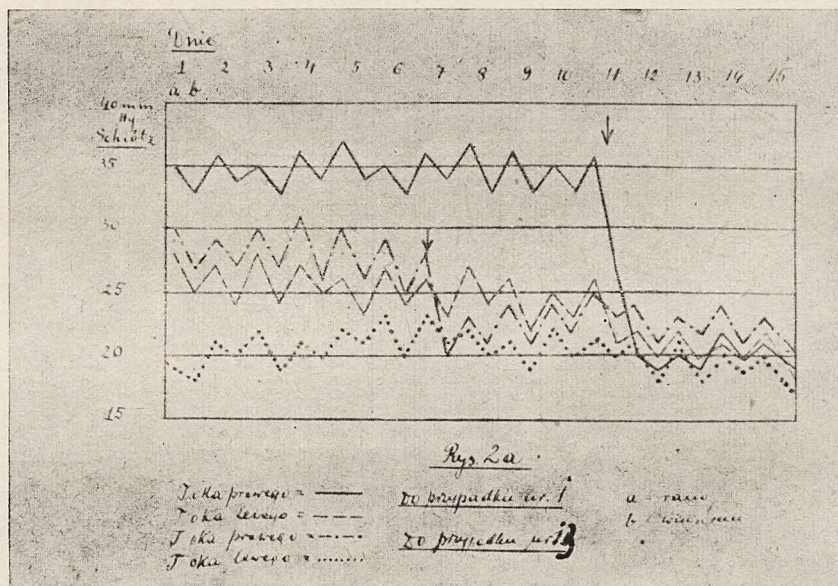 Dnie
1 2 3 4 5 6 7 8 9 10 11 12 13 14 15
a b
40 mm
Hg
Schiötz
35
30
25
20
15
Rys 2a.
T oka prawego =
T oka lewego =
T oka prawego =
T oka lewego =
Do przypadku nr. 1
Do przypadku nr.
a = rano
b =